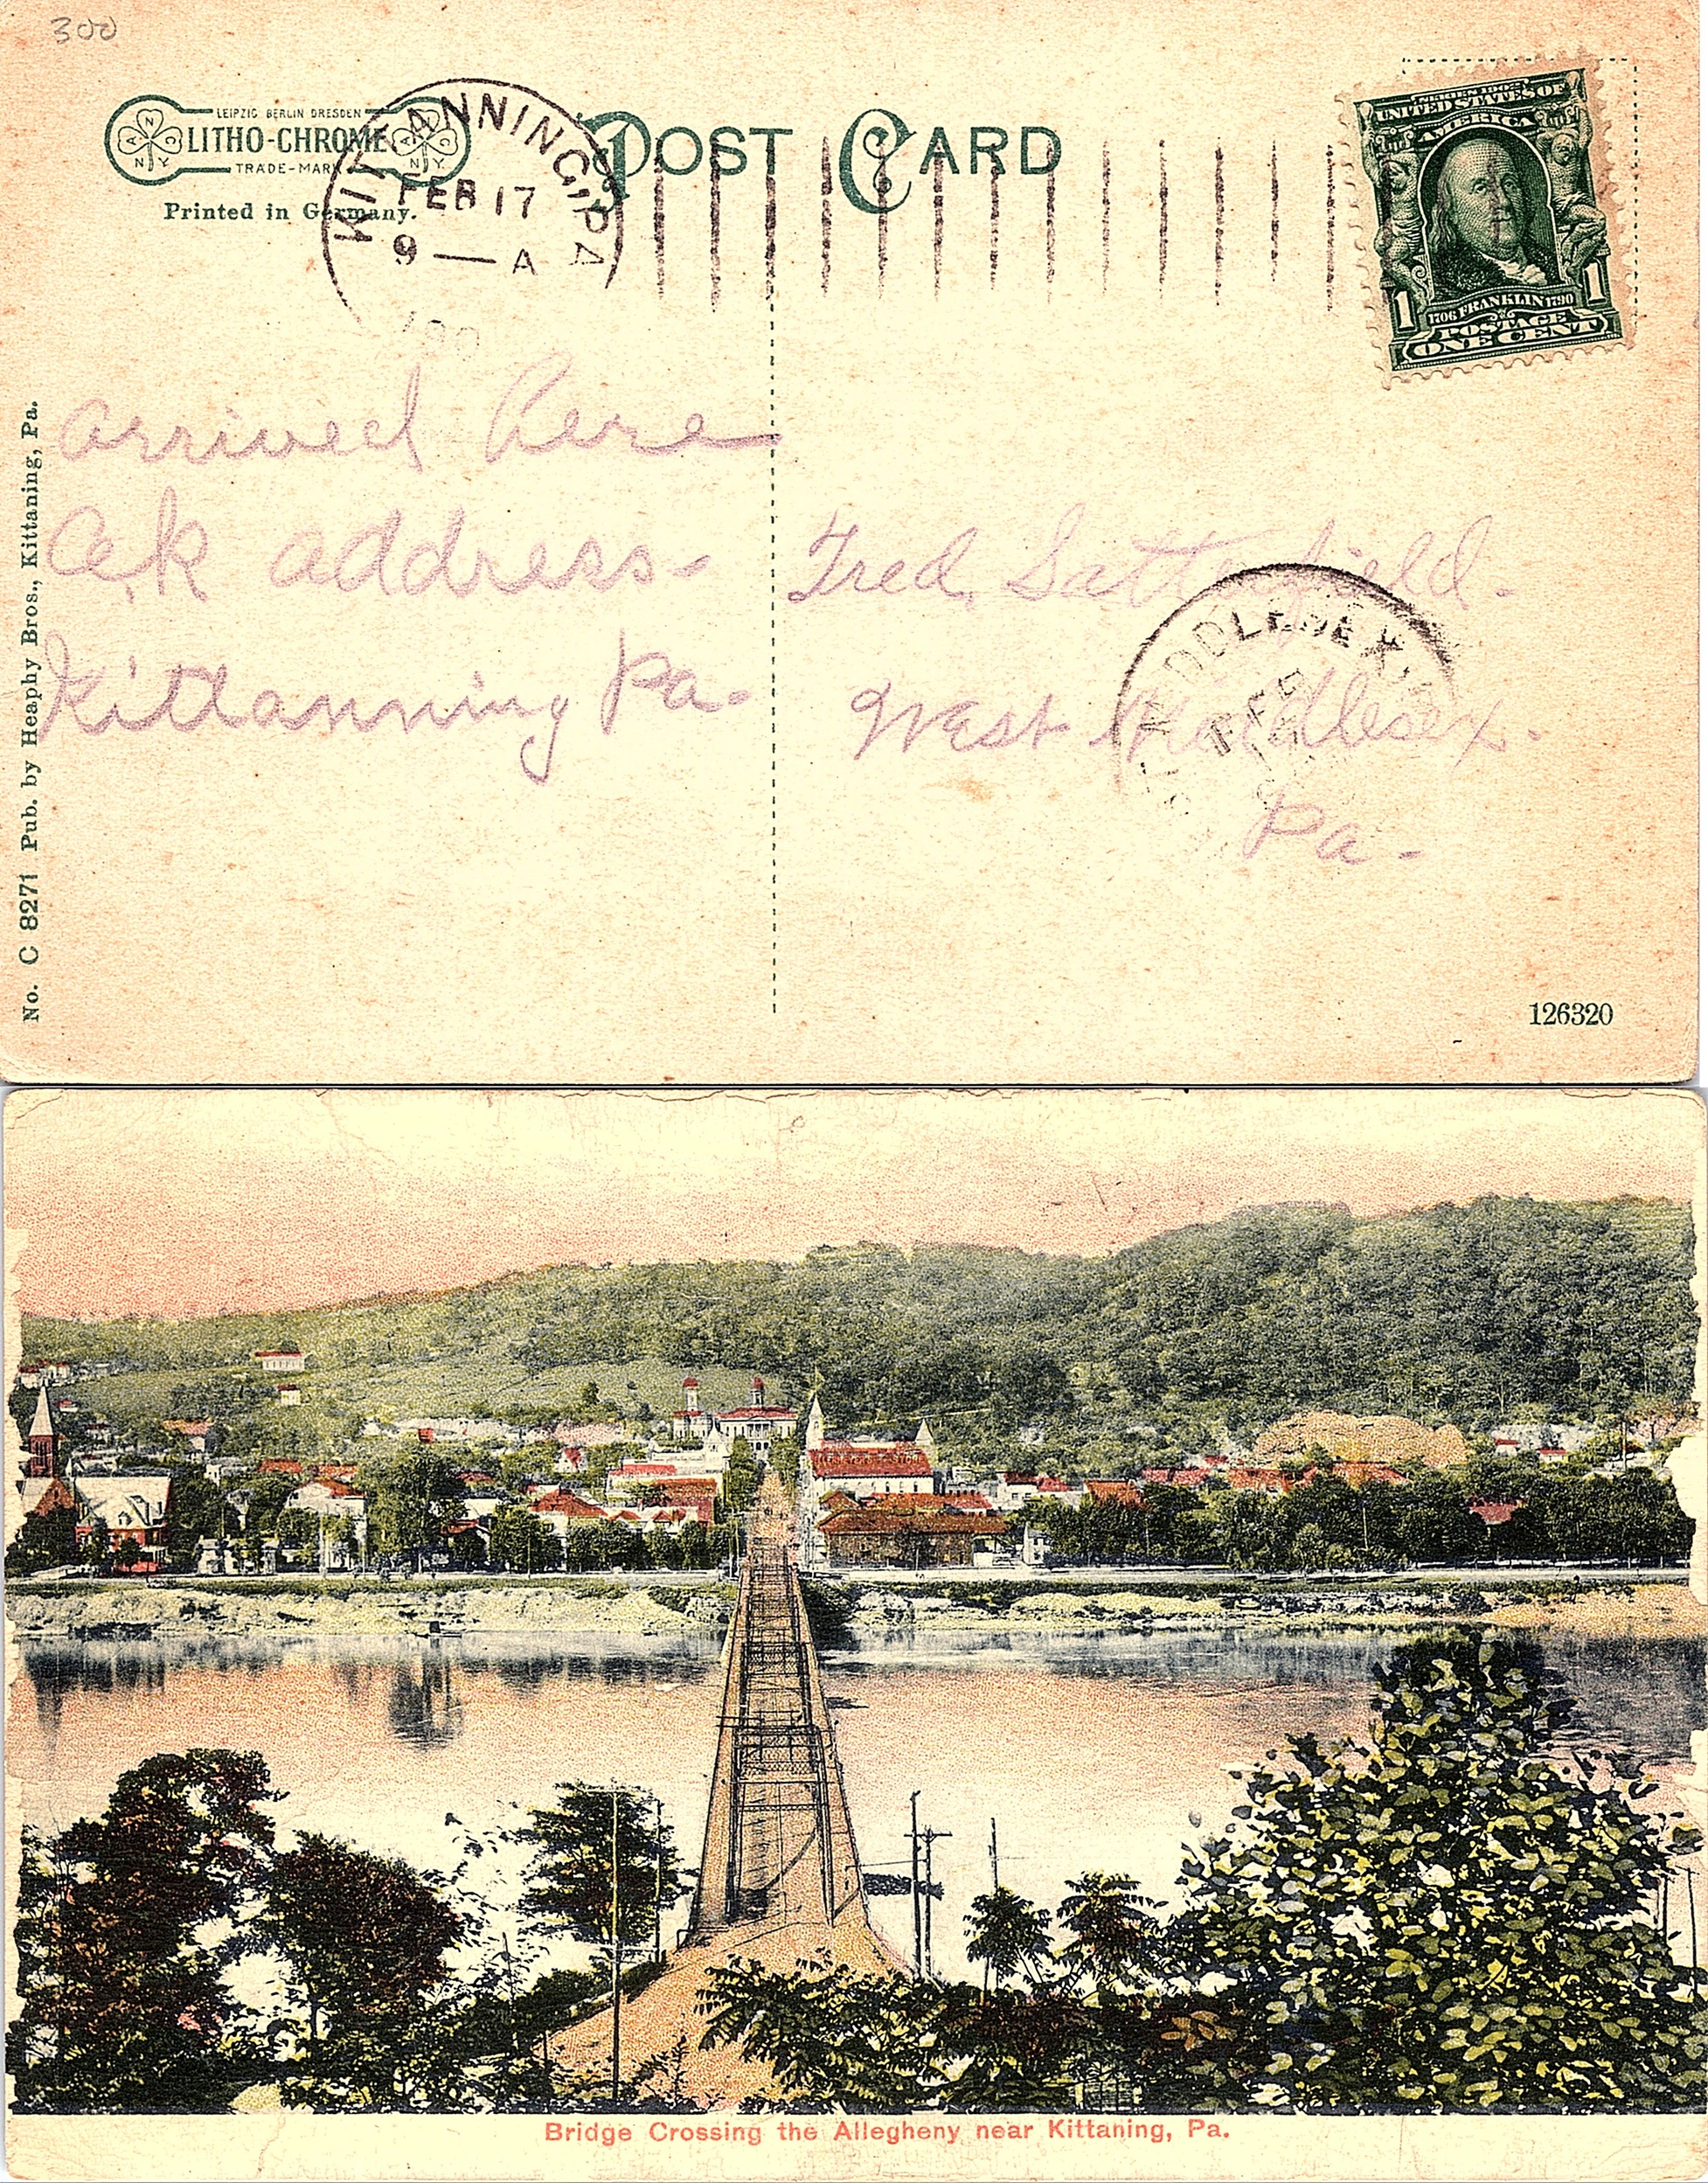 300
LEIPZIG BERLIN DRESDEN
LITHO-CHROME
TRADE-MARK
Printed in Germany.
POST CARD
KITTANNING, PA
FEB 17
9 — A
190
SERIES 1902
UNITED STATES OF
AMERICA
1706 FRANKLIN 1790
1 1
POSTAGE
ONE CENT
arrived here
O.k address-
Kittanning Pa.
Fred Satterfield.
West Middlesex.
Pa-
MIDDLESEX
FEB
No. C 8271 Pub. by Heaphy Bros., Kittaning, Pa.
126320
Bridge Crossing the Allegheny near Kittaning, Pa.